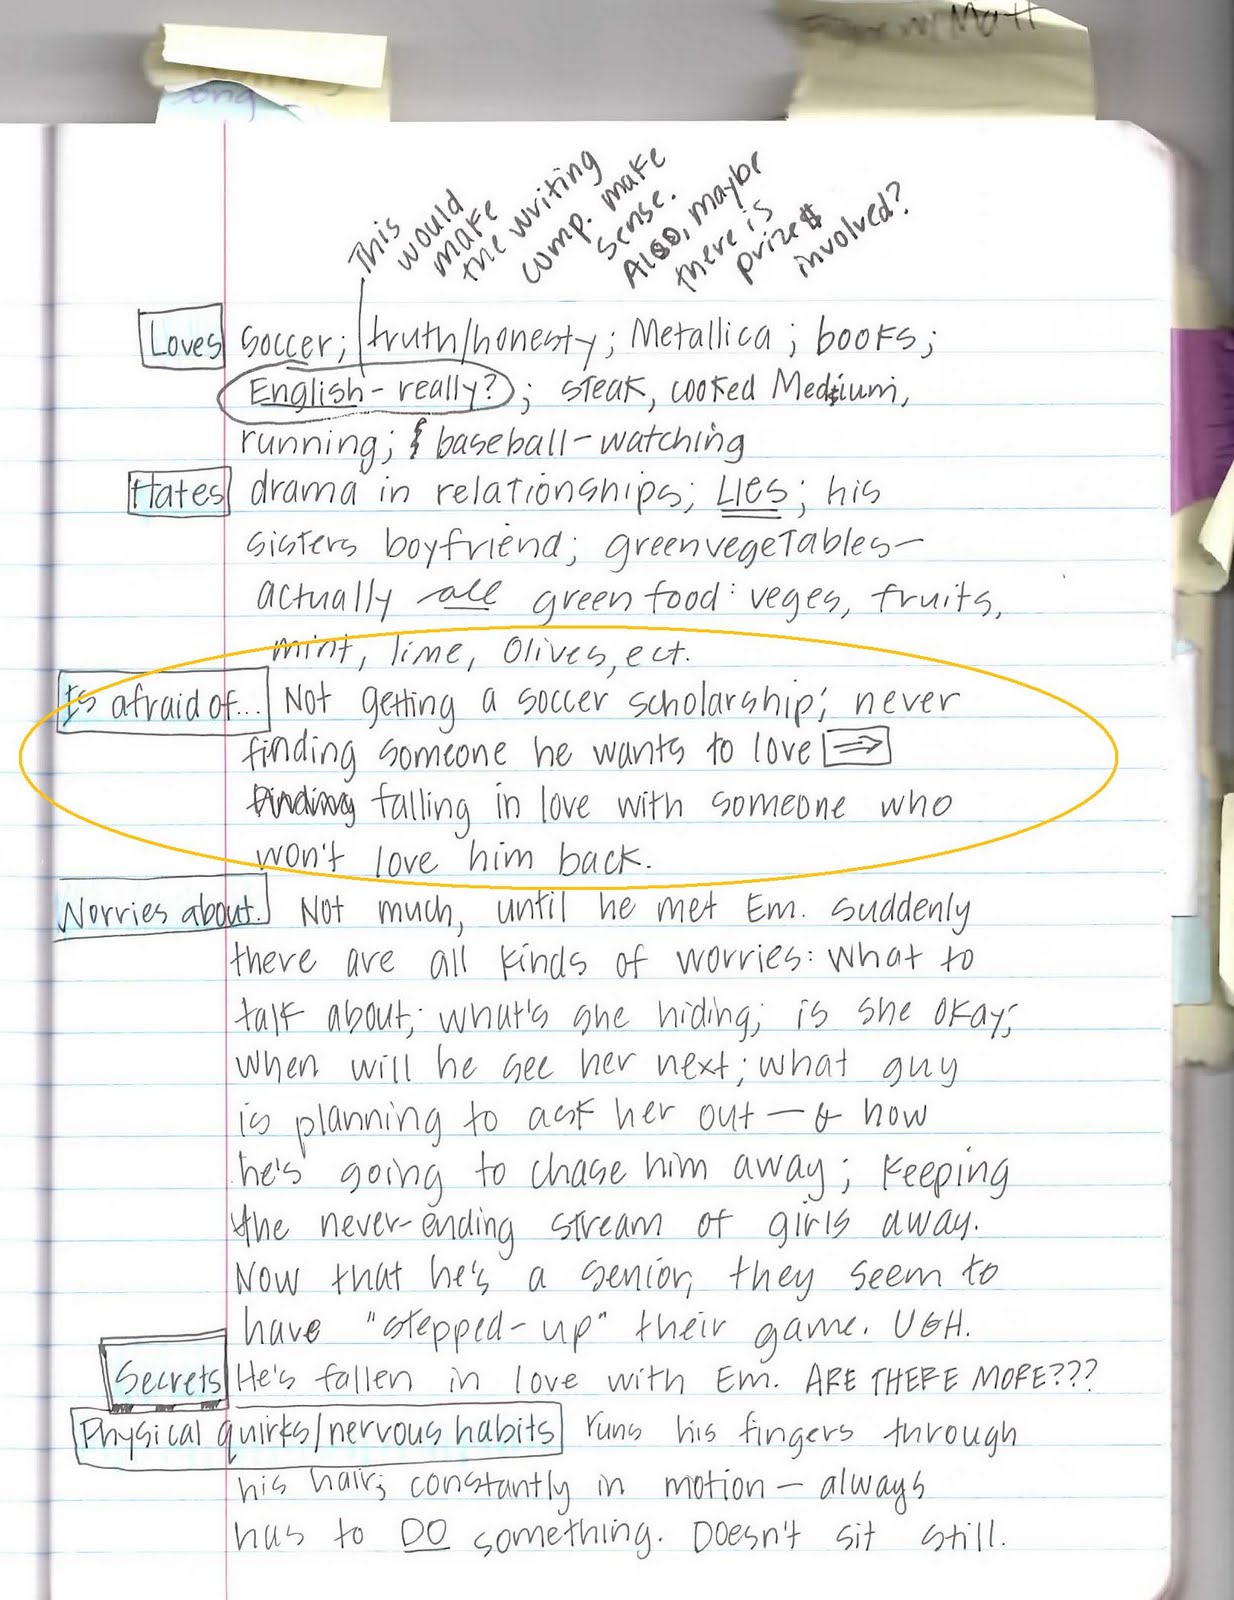 song
w/ Matt
This
would
make
the writing
comp. make
sense.
Also, maybe
there is
prize$
involved?
Loves soccer; truth/honesty; Metallica; books;
English - really?; steak, cooked Medium,
running; & baseball-watching
Hates drama in relationships; LIES; his
sisters boyfriend; green vegetables—
actually all green food: veges, fruits,
mint, lime, olives, ect.
Is afraid of... Not getting a soccer scholarship; never
finding someone he wants to love ⇒
finding falling in love with someone who
won't love him back.
Worries about. Not much, until he met Em. Suddenly
there are all kinds of worries: what to
talk about; what's she hiding; is she okay;
when will he see her next; what guy
is planning to ask her out — & how
he's going to chase him away; keeping
the never-ending stream of girls away.
Now that he's a senior, they seem to
have "stepped-up" their game. UGH.
Secrets He's fallen in love with Em. ARE THERE MORE???
Physical quirks/nervous habits runs his fingers through
his hair; constantly in motion — always
has to DO something. Doesn't sit still.